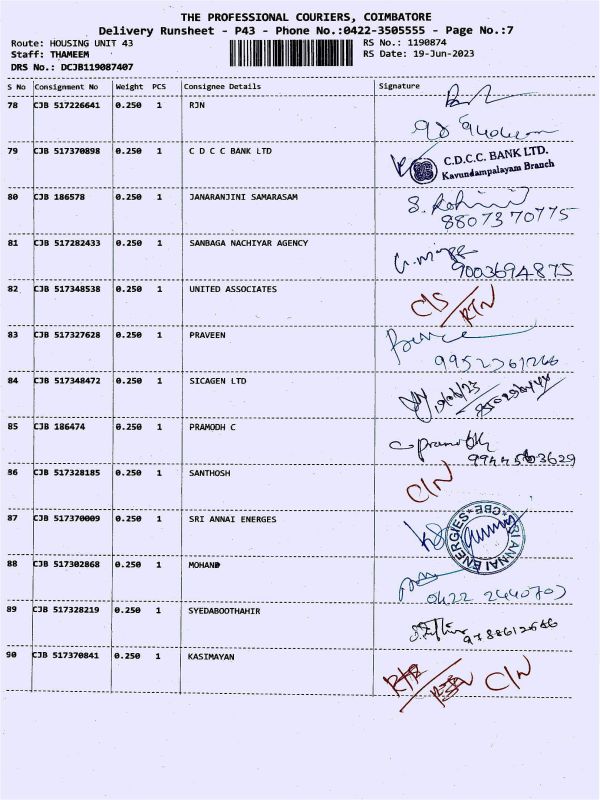 THE PROFESSIONAL COURIERS, COIMBATORE
Delivery Runsheet - P43 - Phone No.:0422-3505555 - Page No.:7
Route: HOUSING UNIT 43 RS No.: 1190874
Staff: THAMEEM RS Date: 19-Jun-2023
DRS No.: DCJB119087407
S No Consignment No Weight PCS Consignee Details Signature
78 CJB 517226641 0.250 1 RJN
79 CJB 517370898 0.250 1 C D C C BANK LTD
C.D.C.C. BANK LTD.
Kavundampalayam Branch
80 CJB 186578 0.250 1 JANARANJINI SAMARASAM S. Rohini
8807370775
81 CJB 517282433 0.250 1 SANBAGA NACHIYAR AGENCY
9003694875
82 CJB 517348538 0.250 1 UNITED ASSOCIATES C/S
RTN
83 CJB 517327628 0.250 1 PRAVEEN
9952361266
84 CJB 517348472 0.250 1 SICAGEN LTD
85 CJB 186474 0.250 1 PRAMODH C C Pramodh
9944563629
86 CJB 517328185 0.250 1 SANTHOSH C/N
87 CJB 517370009 0.250 1 SRI ANNAI ENERGES
SRI ANNAI ENERGIES * CBE *
88 CJB 517302868 0.250 1 MOHAND
0422 2440703
89 CJB 517328219 0.250 1 SYEDABOOTHAHIR
9788612666
90 CJB 517370841 0.250 1 KASIMAYAN RTN C/N